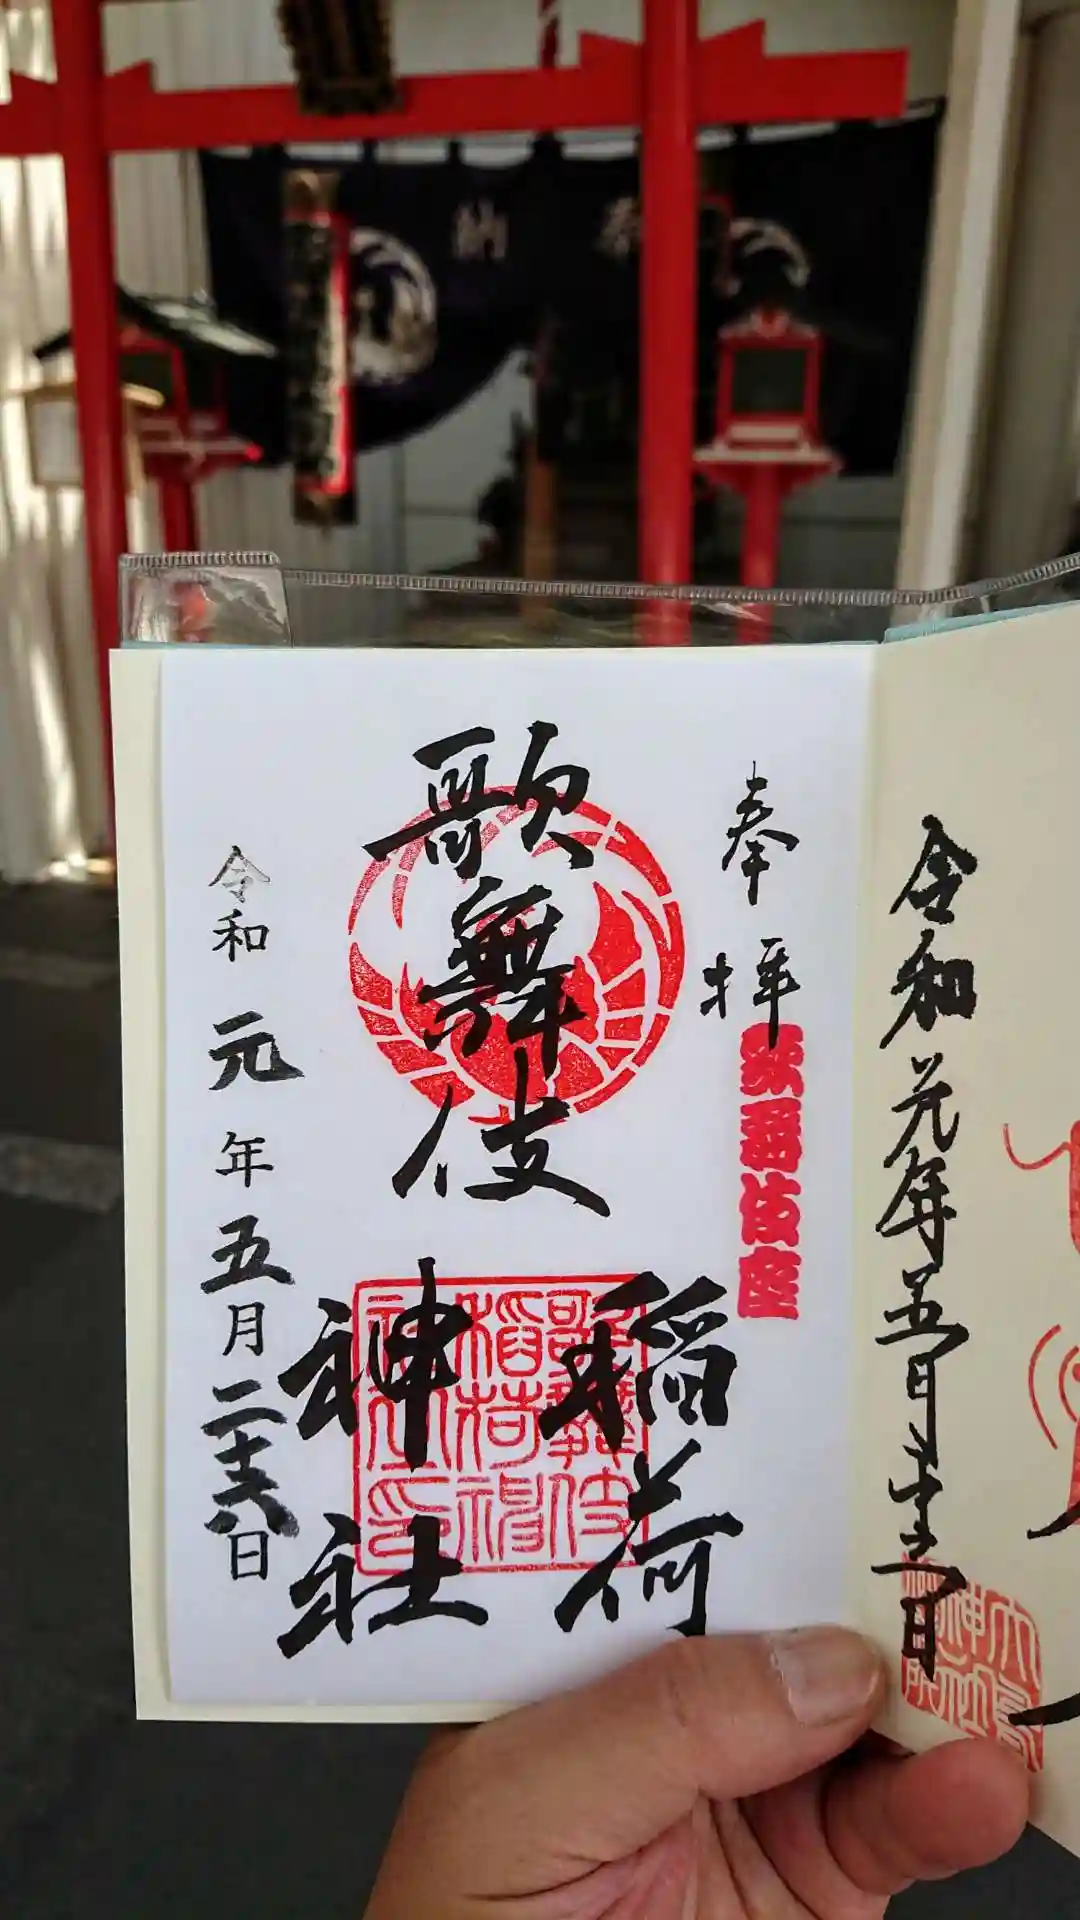 納 奉
令和元年五月
奉拝
歌舞伎座
歌舞伎
稲荷
神社
歌舞伎
稲荷神
社印
令和元年五月二十六日